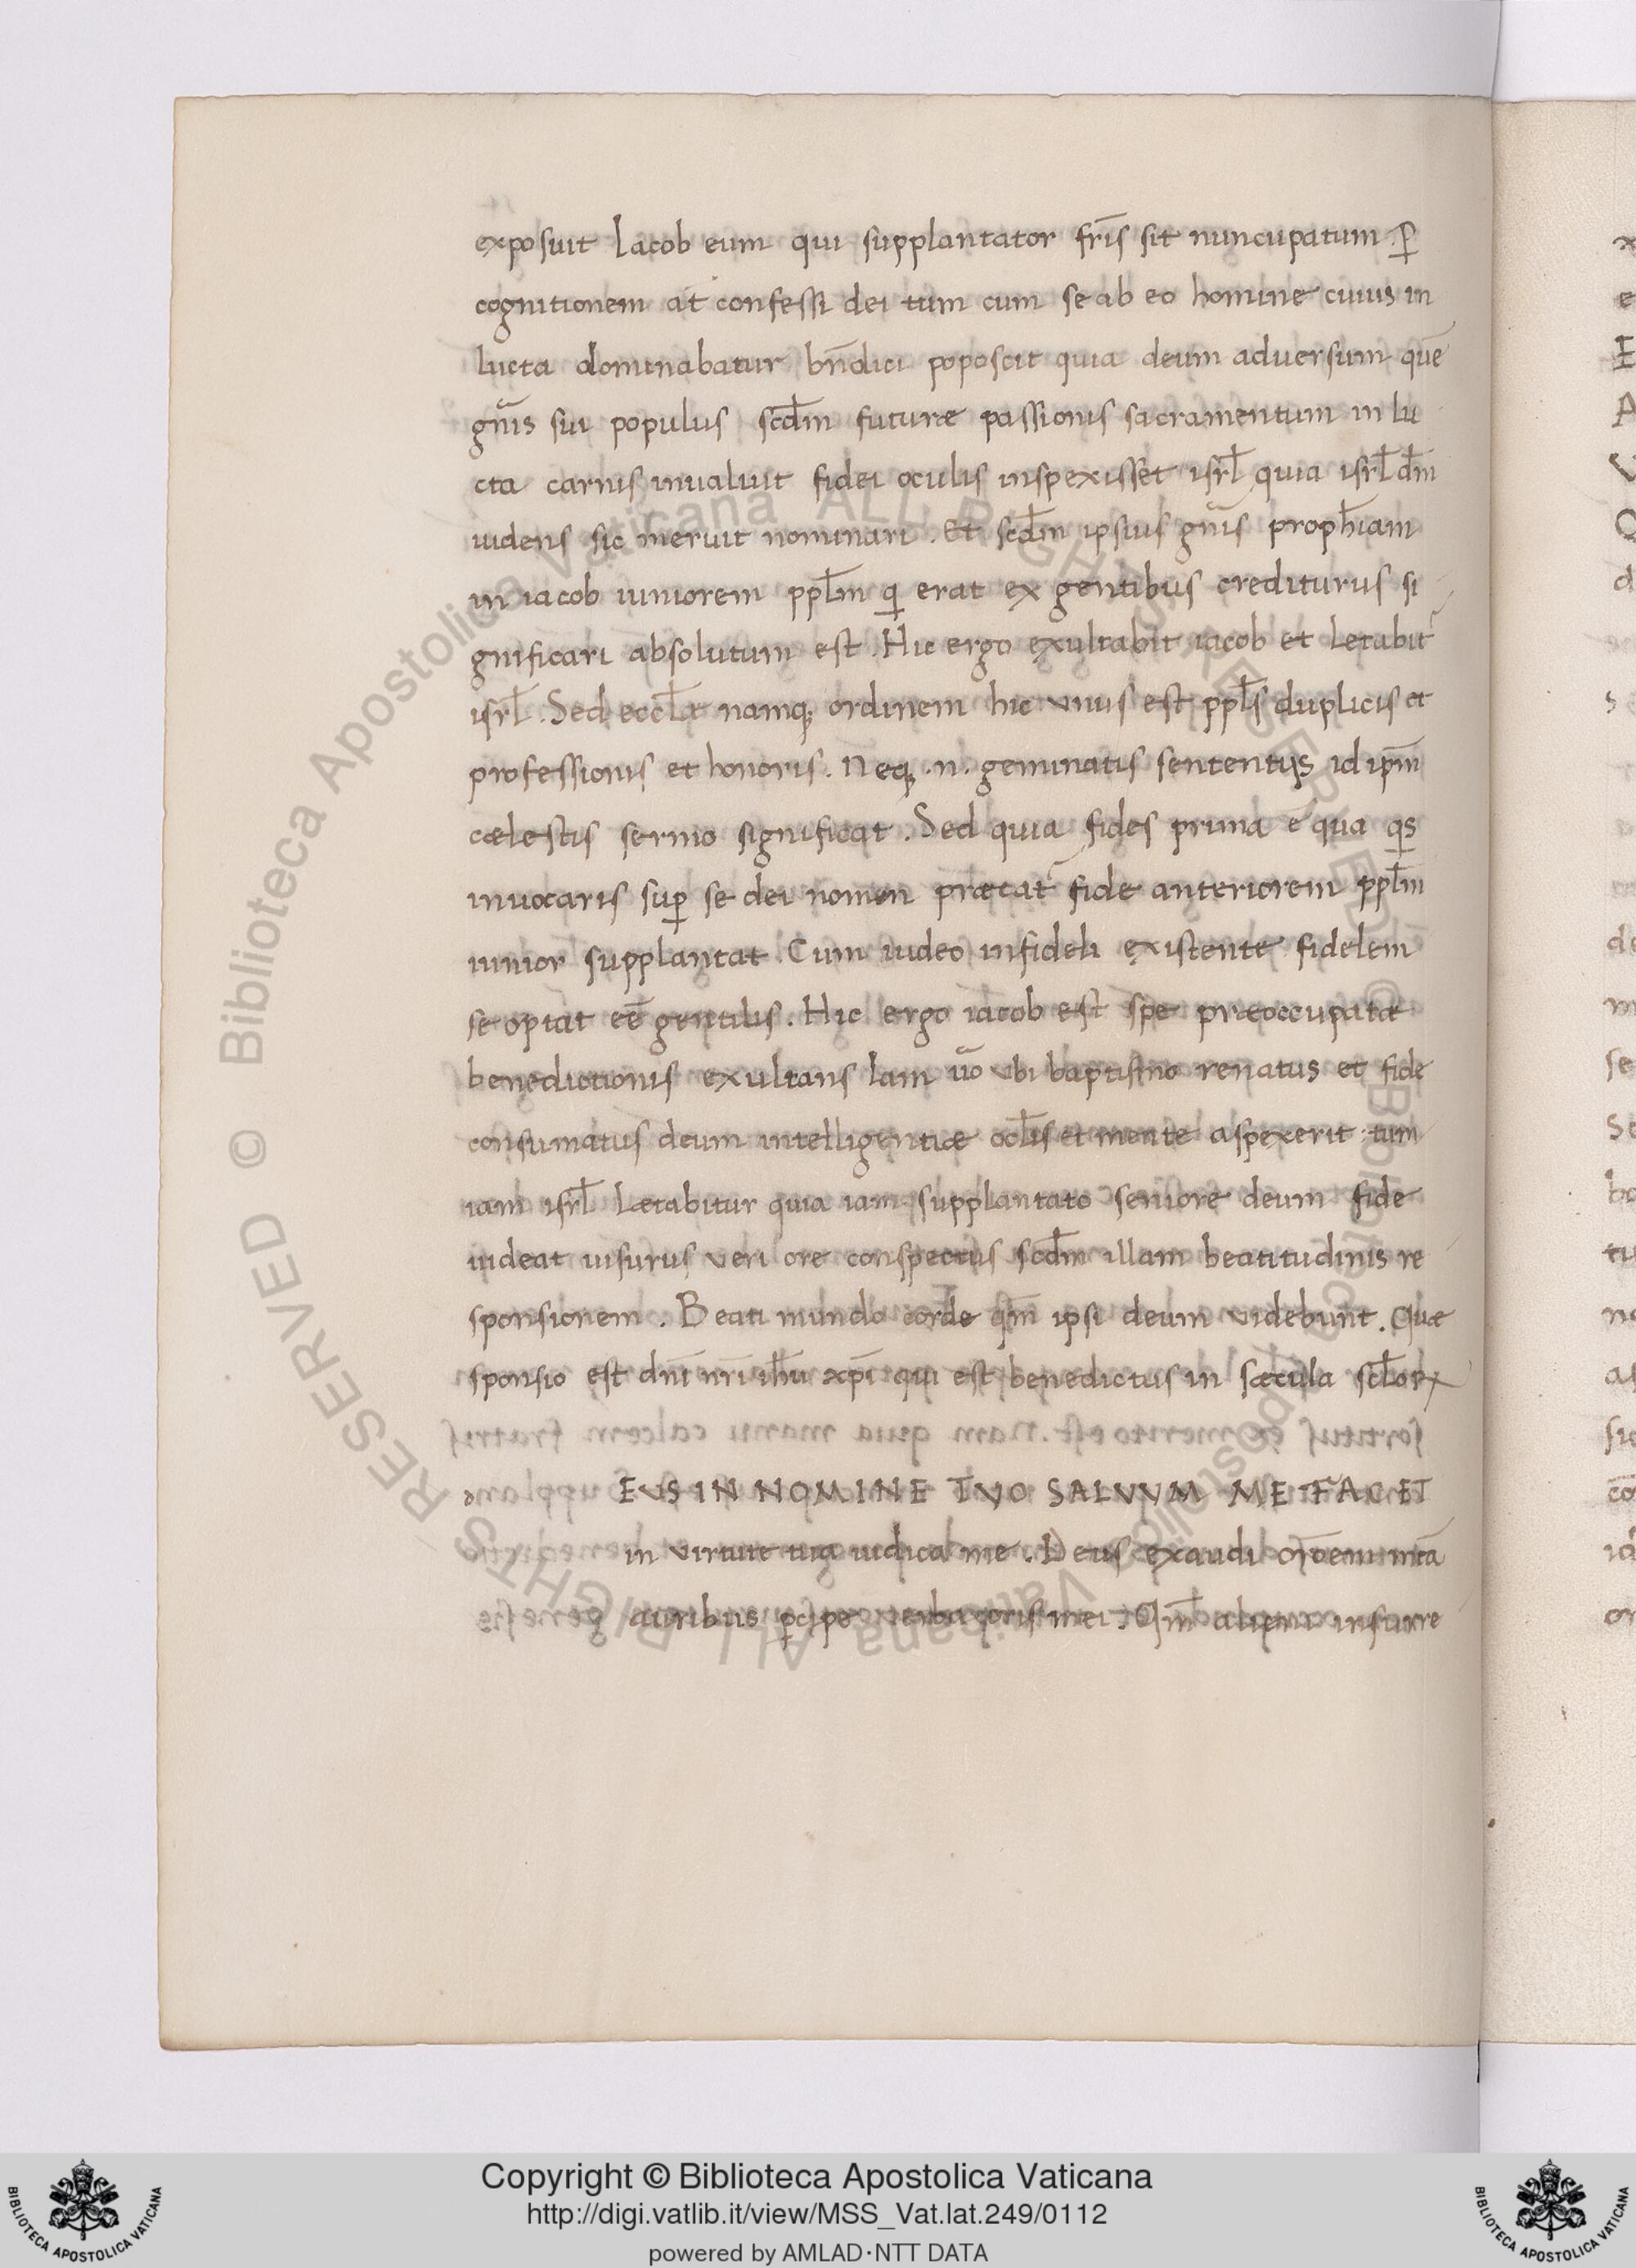 exposuit Iacob eum qui supplantator fr̄is sit nuncupatum . ꝑ
cognitionem at confessi dei tum cum se ab eo homine cuius in
lucta dominabatur bn̄dici poposcit quia deum adversum quē
gn̄is sui populus scd̄m future passionis sacramentum in lu
cta carnis inualuit fidei oculis inspexisset isrl̄ quia isrl̄ dm̄
uidens sic meruit nominari . Et scd̄m ipsius gn̄is proph̄iam
in iacob iuniorem ppl̄m q erat ex gentibus crediturus si
gnificari absolutum est . Hic ergo exultabit iacob et letabit
isrl̄ . Sed eccl̄æ namqꝫ ordinem hic vnus est ppl̄s duplicis et
professionis et honoris . Neqꝫ .n. geminatis sententijs id ip̄m
cælestis sermo significat . Sed quia fides prima ē qua qs
inuocaris suꝑ se dei nomen præcat fide anteriorem ppl̄m
iunior supplantat . Cum iudeo infideli existente fidelem
se optat eē gentilis . Hic ergo iacob est spe præoccupatæ
benedictionis exultans Iam ūo vbi baptismo renatus et fide
consumatus deum intelligentiæ ocl̄is et mente aspexerit tum
iam isrl̄ Lætabitur quia iam supplantato seniore deum fide
uideat uisurus veri ore conspectus scd̄m illam beatitudinis re
sponsionem . Beati mundo corde qm̄ ipsi deum videbunt . Quæ
sponsio est dn̄i nr̄i ih̄u xp̄i qui est benedictus in sæcula scl̄oꝝ
EVS IN NOMINE TVO SALVVM ME FAC ET
in virtute tua iudica me . Deus exaudi or̄oem meā
auribus ꝑcipe verba oris mei . Qm̄ alieni insurre
© Biblioteca Apostolica Vaticana ALL RIGHTS RESERVED
Copyright © Biblioteca Apostolica Vaticana
http://digi.vatlib.it/view/MSS_Vat.lat.249/0112
powered by AMLAD·NTT DATA
BIBLIOTECA APOSTOLICA VATICANA
BIBLIOTECA APOSTOLICA VATICANA